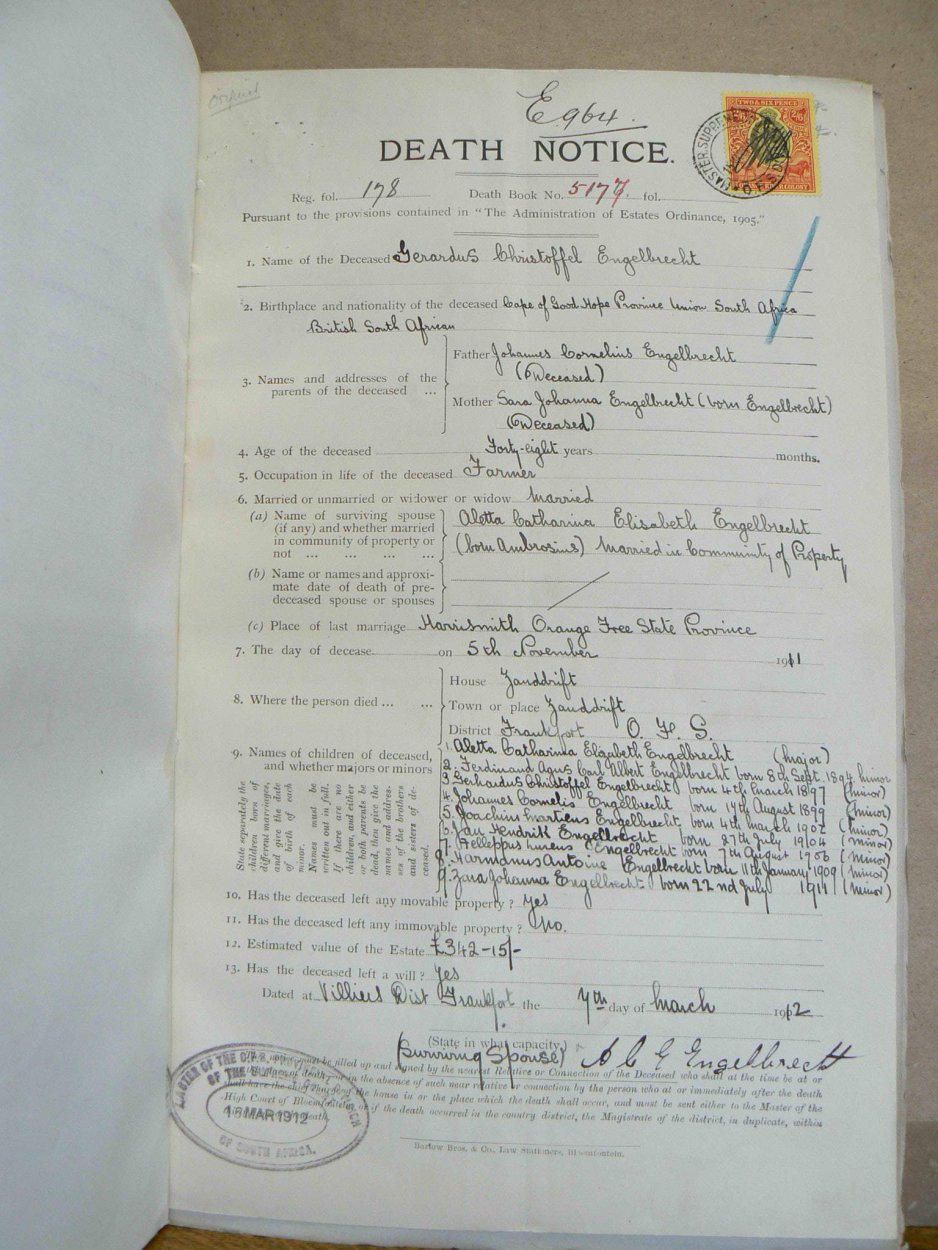 Original
E964.
TWO & SIX PENCE
2/6
MASTER. SUPREME
O.F.S.D
DEATH NOTICE.
Reg. fol. 178 Death Book No. 5177. fol.
Pursuant to the provisions contained in "The Administration of Estates Ordinance, 1905."
1. Name of the Deceased Gerardus Christoffel Engelbrecht
2. Birthplace and nationality of the deceased Cape of Good Hope Province Union South Africa
British South African
Father Johannes Cornelius Engelbrecht
(Deceased)
3. Names and addresses of the
parents of the deceased ...
Mother Sara Johanna Engelbrecht (born Engelbrecht)
(Deceased)
4. Age of the deceased Forty-eight years months.
5. Occupation in life of the deceased Farmer
6. Married or unmarried or widower or widow Married
(a) Name of surviving spouse
(if any) and whether married
in community of property or
not ... ... ... ...
Aletta Catharina Elisabeth Engelbrecht
(born Ambrosius) Married in Community of Property
(b) Name or names and approxi-
mate date of death of pre-
deceased spouse or spouses
(c) Place of last marriage Harrismith Orange Free State Province
7. The day of decease on 5th November 1911
8. Where the person died ... ...
House Zanddrift
Town or place Zanddrift
District Frankfort O. F. S.
9. Names of children of deceased,
and whether majors or minors
State separately the
children born of
different marriages,
and give the date
of birth of each
minor.
Names must be
written out in full.
If there are no
children, and either
or both parents be
dead, then give the
names and addres-
ses of the brothers
and sisters of de-
ceased.
1. Aletta Catharina Elizabeth Engelbrecht (major)
2. Ferdinand Agus Carl Albert Engelbrecht born 8th Sept. 1894 minor
3 Gerhardus Christoffel Engelbrecht born 4th March 1897 (minor)
4. Johannes Cornelis Engelbrecht born 14th August 1899 (minor)
5. Joachim Martiens Engelbrecht born 4th march 1902 (minor)
6. Jan Hendrik Engelbrecht born 27th July 1904 (minor)
7. Engelbrecht born 7th August 1906 (minor)
8. Harmanus Antoine Engelbrecht born 11th January 1909 (minor)
9. Zara Johanna Engelbrecht born 22nd July 1911 (minor)
10. Has the deceased left any movable property? Yes
11. Has the deceased left any immovable property? No.
12. Estimated value of the Estate £342-15/-
13. Has the deceased left a will? Yes
Dated at Villiers Dist Frankfort the 7th day of March 1912
(State in what capacity)
(Surviving Spouse) A C E Engelbrecht
must be filled up and signed by the nearest Relative or Connection of the Deceased who shall at the time be at or
place of death, or in the absence of such near relative or connection by the person who at or immediately after the death
shall have the chief charge of the house in or the place which the death shall occur, and must be sent either to the Master of the
High Court of Bloemfontein, or if the death occurred in the country district, the Magistrate of the district, in duplicate, within
death.
MASTER OF THE O.F.S.
OF THE
18 MAR 1912
OF SOUTH AFRICA.
Barlow Bros. & Co., Law Stationers, Bloemfontein.